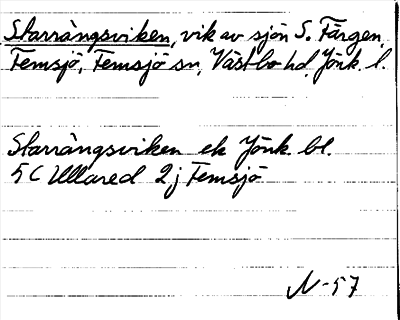 Starrängsviken, vik av sjön S. Färgen,
Femsjö, Femsjö sn, Västbo hd, Jönk. l.
Starrängsviken ek Jönk. bl.
5 C Ullared 2 j Femsjö
N-57